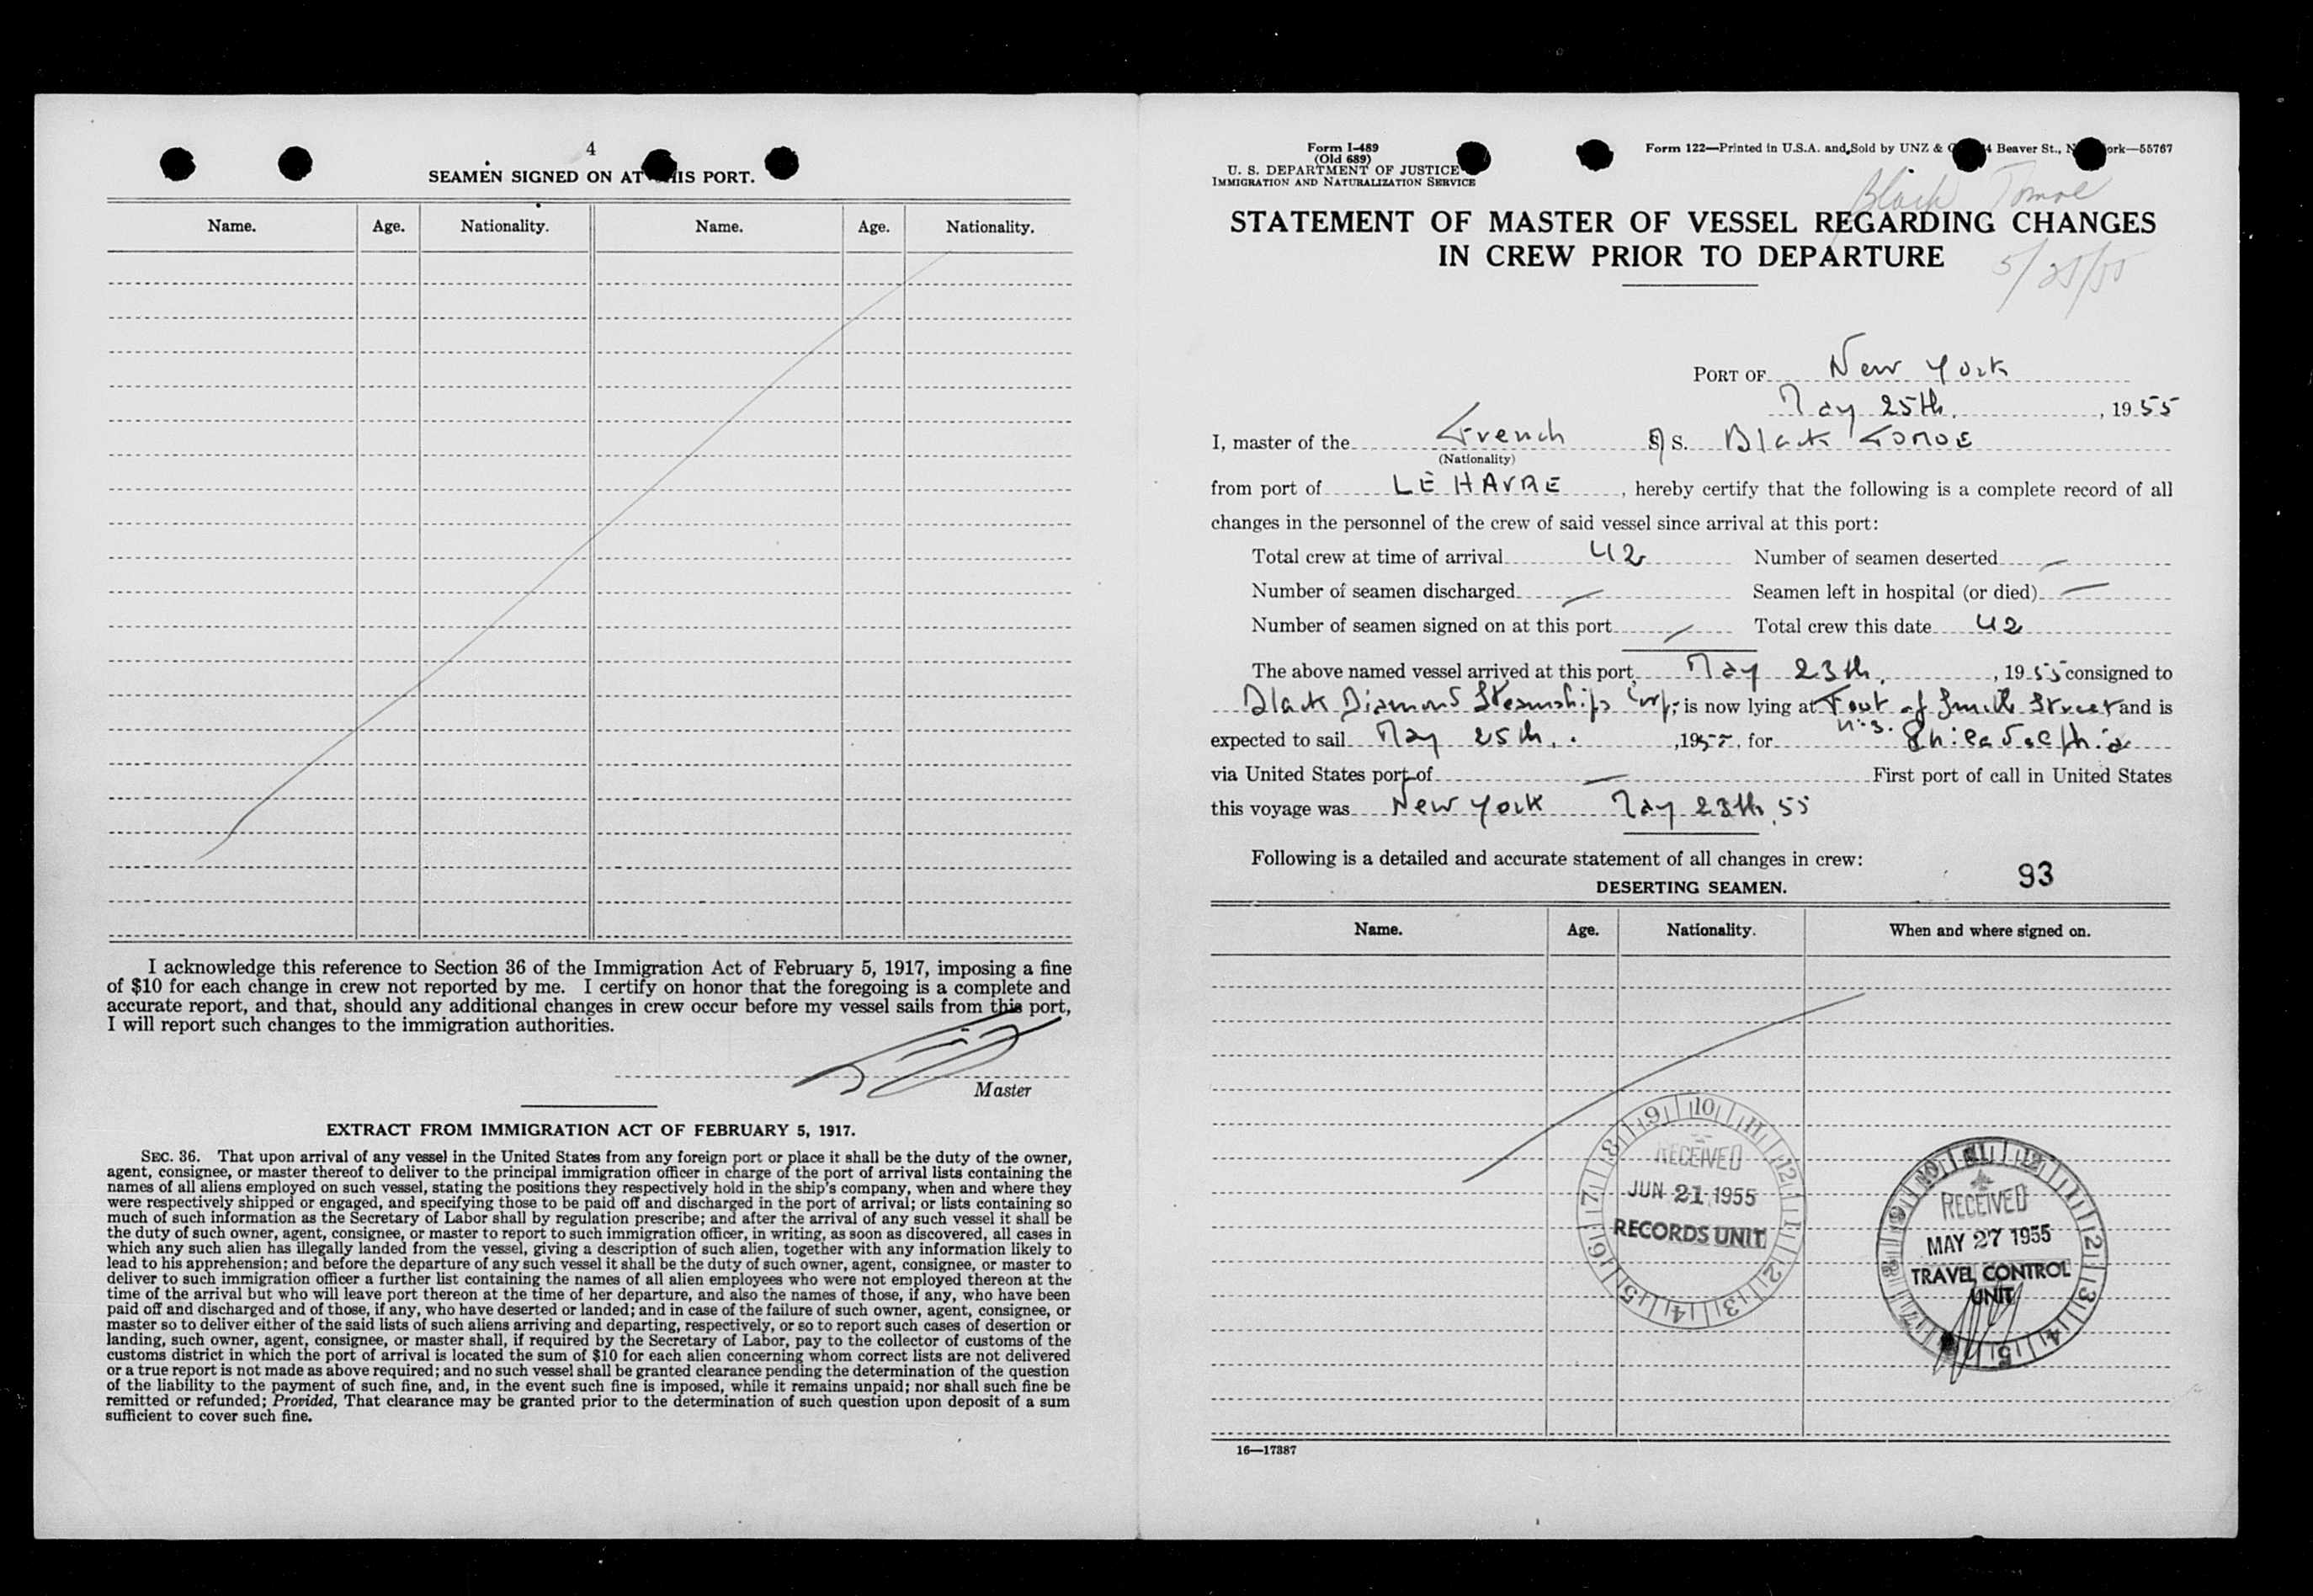 4
SEAMEN SIGNED ON AT THIS PORT.
Name. Age. Nationality. Name. Age. Nationality.
I acknowledge this reference to Section 36 of the Immigration Act of February 5, 1917, imposing a fine
of $10 for each change in crew not reported by me. I certify on honor that the foregoing is a complete and
accurate report, and that, should any additional changes in crew occur before my vessel sails from this port,
I will report such changes to the immigration authorities.
Master
EXTRACT FROM IMMIGRATION ACT OF FEBRUARY 5, 1917.
SEC. 36. That upon arrival of any vessel in the United States from any foreign port or place it shall be the duty of the owner,
agent, consignee, or master thereof to deliver to the principal immigration officer in charge of the port of arrival lists containing the
names of all aliens employed on such vessel, stating the positions they respectively hold in the ship's company, when and where they
were respectively shipped or engaged, and specifying those to be paid off and discharged in the port of arrival; or lists containing so
much of such information as the Secretary of Labor shall by regulation prescribe; and after the arrival of any such vessel it shall be
the duty of such owner, agent, consignee, or master to report to such immigration officer, in writing, as soon as discovered, all cases in
which any such alien has illegally landed from the vessel, giving a description of such alien, together with any information likely to
lead to his apprehension; and before the departure of any such vessel it shall be the duty of such owner, agent, consignee, or master to
deliver to such immigration officer a further list containing the names of all alien employees who were not employed thereon at the
time of the arrival but who will leave port thereon at the time of her departure, and also the names of those, if any, who have been
paid off and discharged and of those, if any, who have deserted or landed; and in case of the failure of such owner, agent, consignee, or
master so to deliver either of the said lists of such aliens arriving and departing, respectively, or so to report such cases of desertion or
landing, such owner, agent, consignee, or master shall, if required by the Secretary of Labor, pay to the collector of customs of the
customs district in which the port of arrival is located the sum of $10 for each alien concerning whom correct lists are not delivered
or a true report is not made as above required; and no such vessel shall be granted clearance pending the determination of the question
of the liability to the payment of such fine, and, in the event such fine is imposed, while it remains unpaid; nor shall such fine be
remitted or refunded; Provided, That clearance may be granted prior to the determination of such question upon deposit of a sum
sufficient to cover such fine.
Form I-489
(Old 689)
U. S. DEPARTMENT OF JUSTICE
IMMIGRATION AND NATURALIZATION SERVICE
Form 122—Printed in U.S.A. and Sold by UNZ & Beaver St., ork—55767
Black Tomoe
STATEMENT OF MASTER OF VESSEL REGARDING CHANGES
IN CREW PRIOR TO DEPARTURE
5/25/55
PORT OF New York
May 25th, 1955
I, master of the French S/S. Black TOMOE
(Nationality)
from port of LE HAVRE, hereby certify that the following is a complete record of all
changes in the personnel of the crew of said vessel since arrival at this port:
Total crew at time of arrival 42 Number of seamen deserted —
Number of seamen discharged — Seamen left in hospital (or died) —
Number of seamen signed on at this port — Total crew this date 42
The above named vessel arrived at this port, May 23th, 1955 consigned to
Black Diamond Steamships Corp; is now lying at Foot of Smith Street and is
expected to sail May 25th, 1955, for Philadelphia
via United States port of — First port of call in United States
this voyage was New York May 23th, 55
Following is a detailed and accurate statement of all changes in crew:
93
DESERTING SEAMEN.
Name. Age. Nationality. When and where signed on.
9 10 11 12 1 2 3 4 5 6 7 8
RECEIVED
JUN 21 1955
RECORDS UNIT
9 10 11 12 1 2 3 4 5 7 8
RECEIVED
MAY 27 1955
TRAVEL CONTROL
UNIT
16—17387